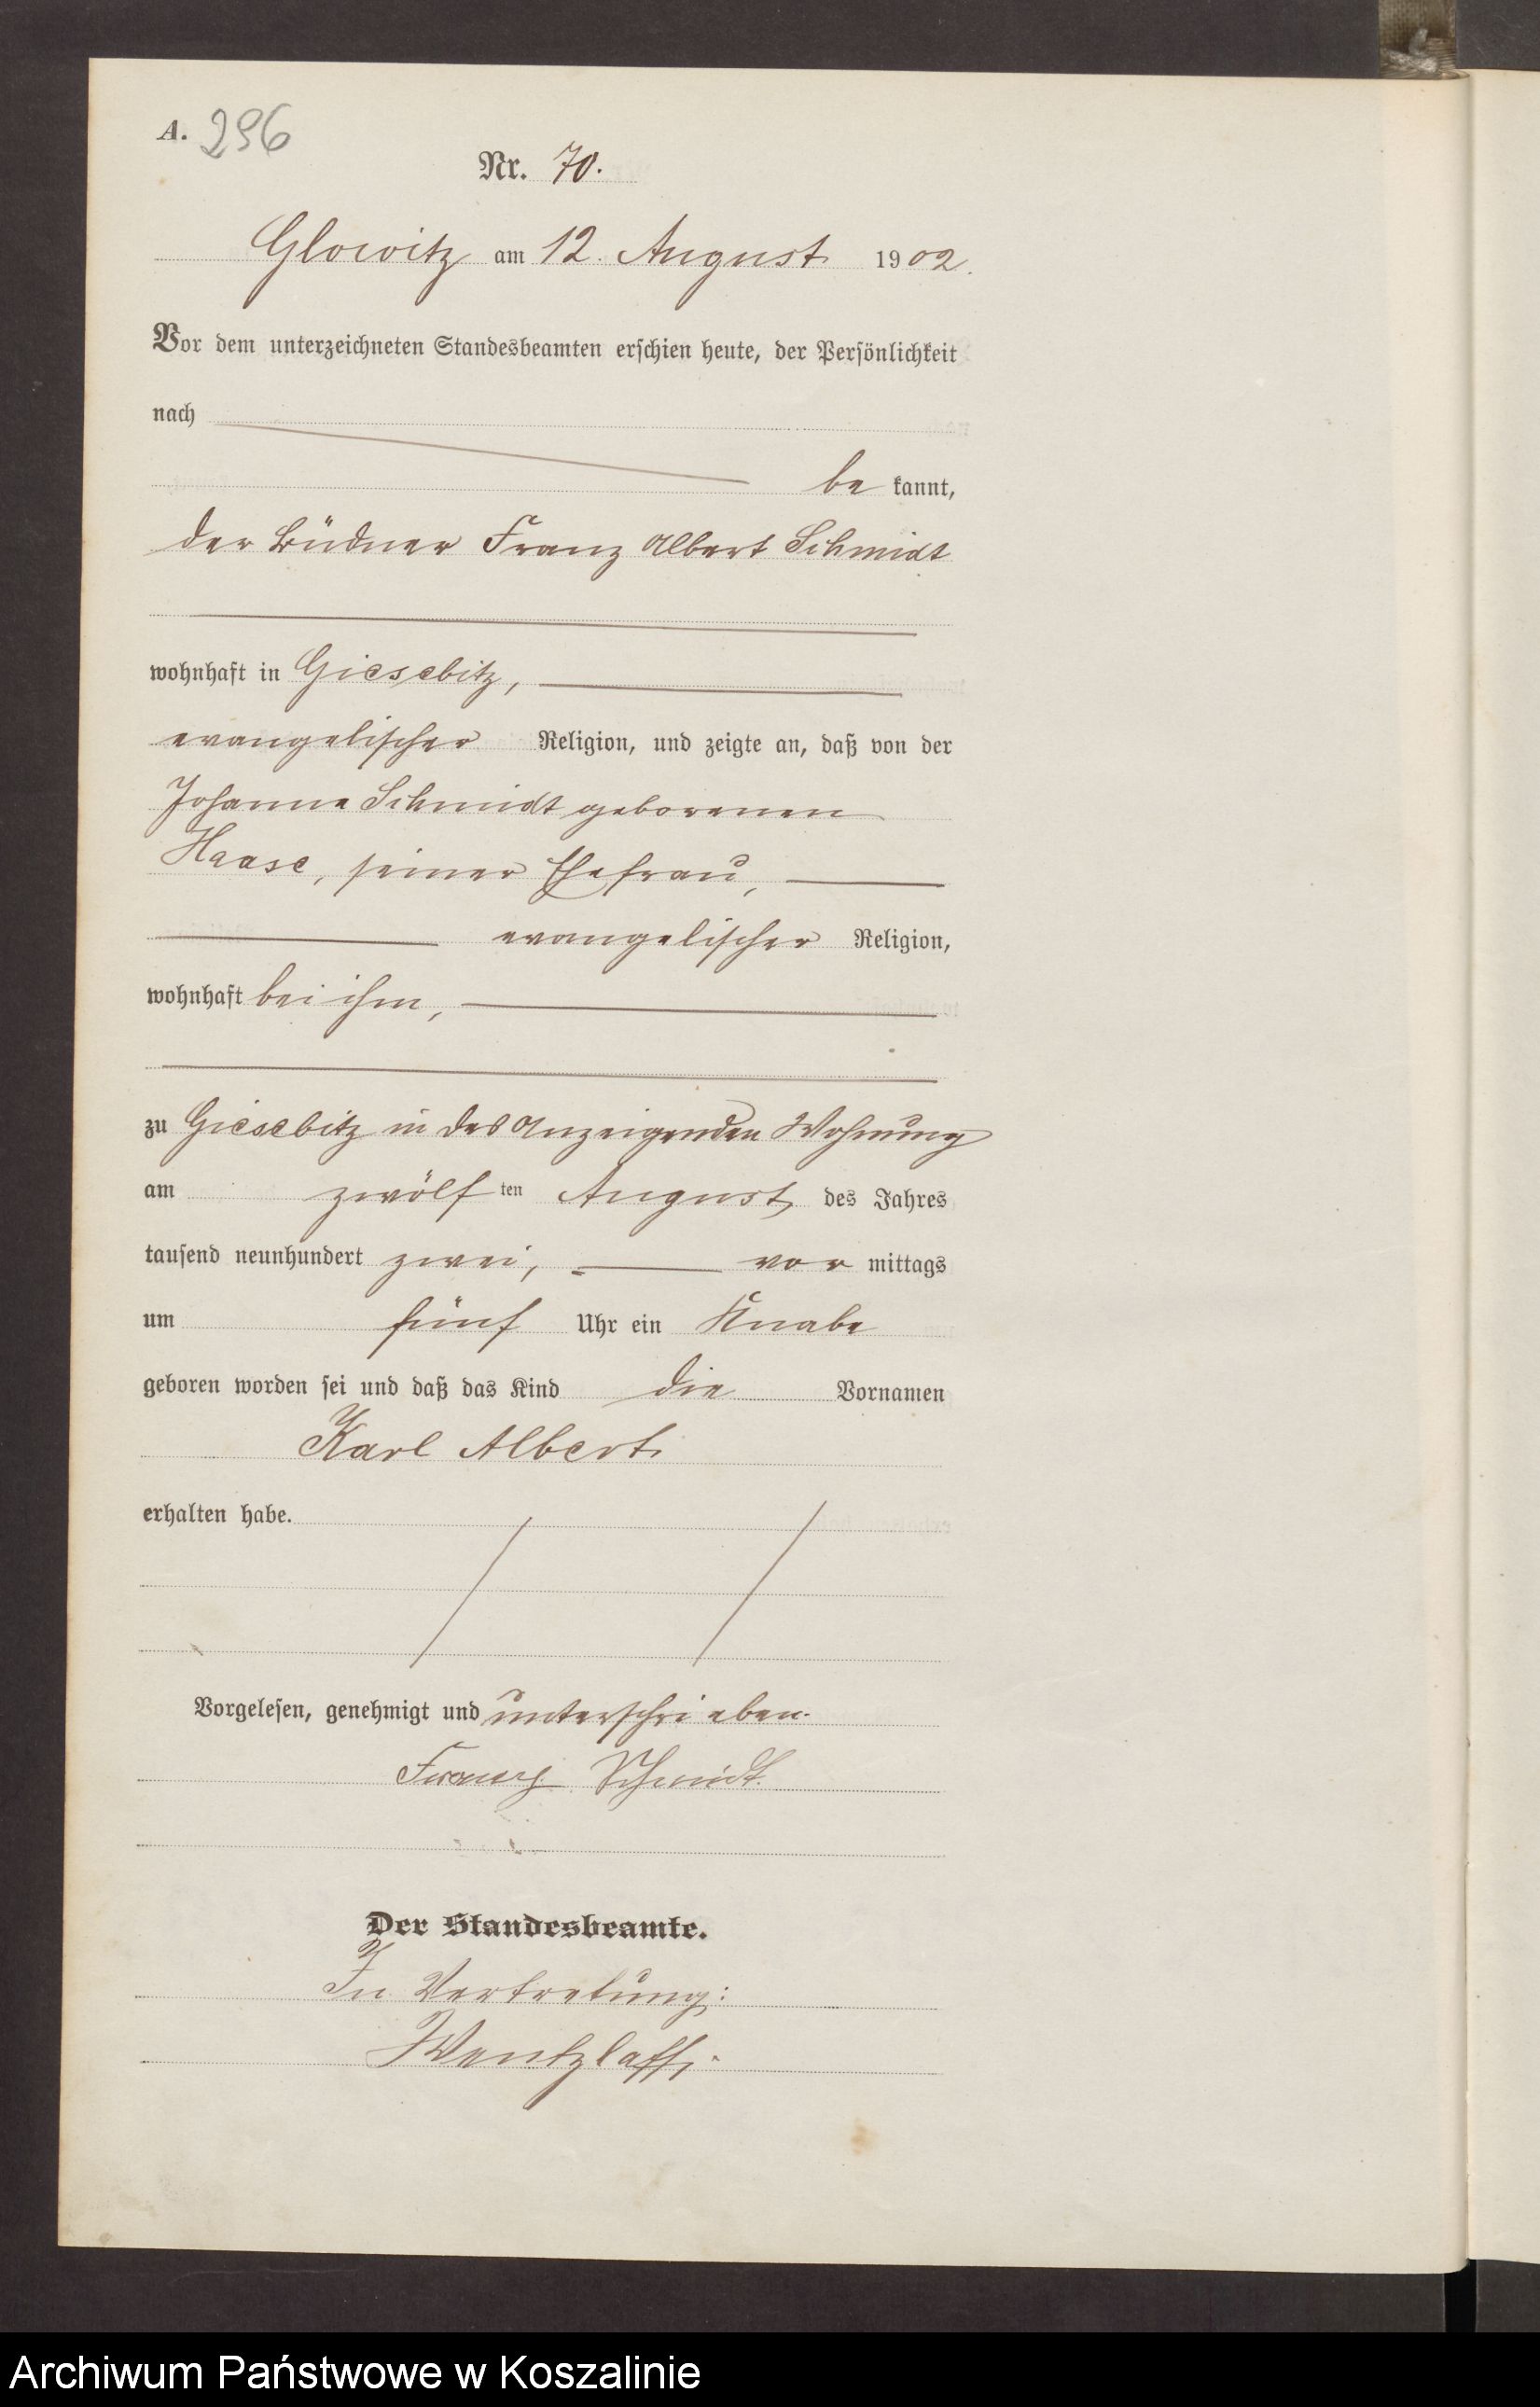 A. 296
Nr. 70.
Glowitz am 12. August 1902.
Vor dem unterzeichneten Standesbeamten erschien heute, der Persönlichkeit
nach
be kannt,
der Büdner Franz Albert Schmidt
wohnhaft in Giesebitz,
evangelischer Religion, und zeigte an, daß von der
Johanne Schmidt geborenen
Haase, seiner Ehefrau,
evangelischer Religion,
wohnhaft bei ihm,
zu Giesebitz in des Anzeigenden Wohnung
am zwölf ten August des Jahres
tausend neunhundert zwei, vor mittags
um fünf Uhr ein Knabe
geboren worden sei und daß das Kind die Vornamen
Karl Albert
erhalten habe.
Vorgelesen, genehmigt und unterschrieben.
Franz Schmidt.
Der Standesbeamte.
In Vertretung:
Wentzlaff.
Archiwum Państwowe w Koszalinie